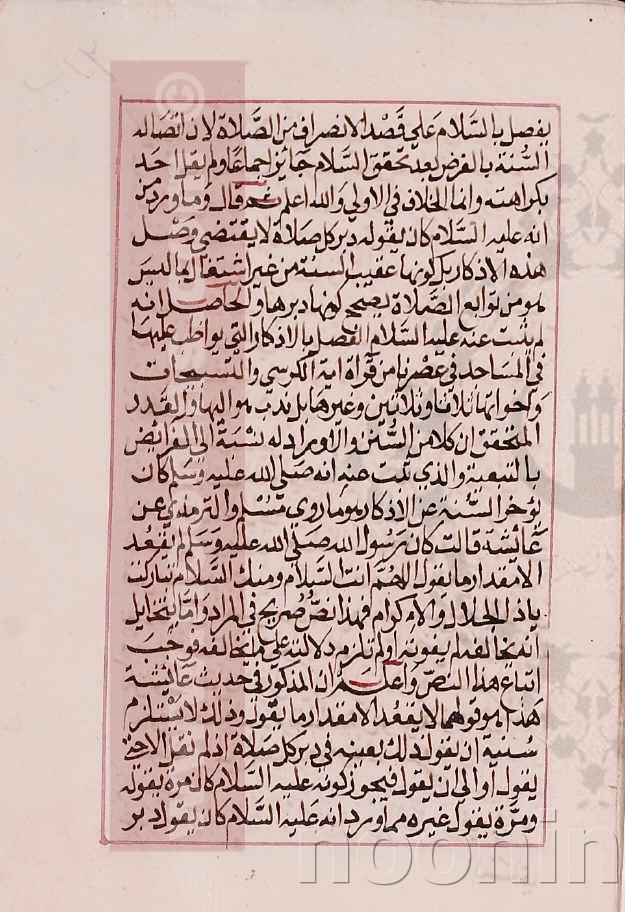 يفصل بالسلام على قصد الانصراف من الصلاة لان اتصاله
السنة بالفرض بعد تحقق السلام جايز اجماعا ولم يقل احد
بكراهته وانما الخلاف في الاولى والله اعلم ثم قال وما ورد من
انه عليه السلام كان يقوله دبر كل صلاة لا يقتضي وصل
هذه الاذكار بل كونها عقيب السنة من غير اشتغال بما ليس
هو من توابع الصلاة يصحح كونها دبرها والحاصل انه
لم يثبت عنه عليه السلام الفصل بالاذكار التي يواظب عليها
في المساجد في عصرنا من قراة اية الكرسي والتسبيحات
واخواتها ثلاثا وثلاثين وغيرها بل ندب هو اليها والقدر
المتحقق ان كلا من السنن والاوراد له نسبة الى الفرايض
بالتبعية والذي ثبت عنه انه صلى الله عليه وسلم كان
يؤخر السنة عن الاذكار هو ما روى مسلم والترمذي عن
عائشة قالت كان رسول الله صلى الله عليه وسلم يقعد
الا مقدار ما يقول اللهم انت السلام ومنك السلام تباركت
ياذا الجلال والاكرام فهذا نص صريح في المراد وما يتخايل
انه يخالفه لم يقوته او لم تلزم دلالته على ما يخالفه فوجب
اتباع هذا النص واعلم ان المذكور في حديث عائشة
هذا هو قولها لا يقعد الا مقدار ما يقول وذلك لا يستلزم
سنية ان يقول ذلك بعينه في دبر كل صلاة اذ لم تقل الا حتى
يقول او الى ان يقول فيجوز كونه عليه السلام كان مرة يقوله
ومرة يقول غيره مما ورد انه عليه السلام كان يقول دبر
noonin